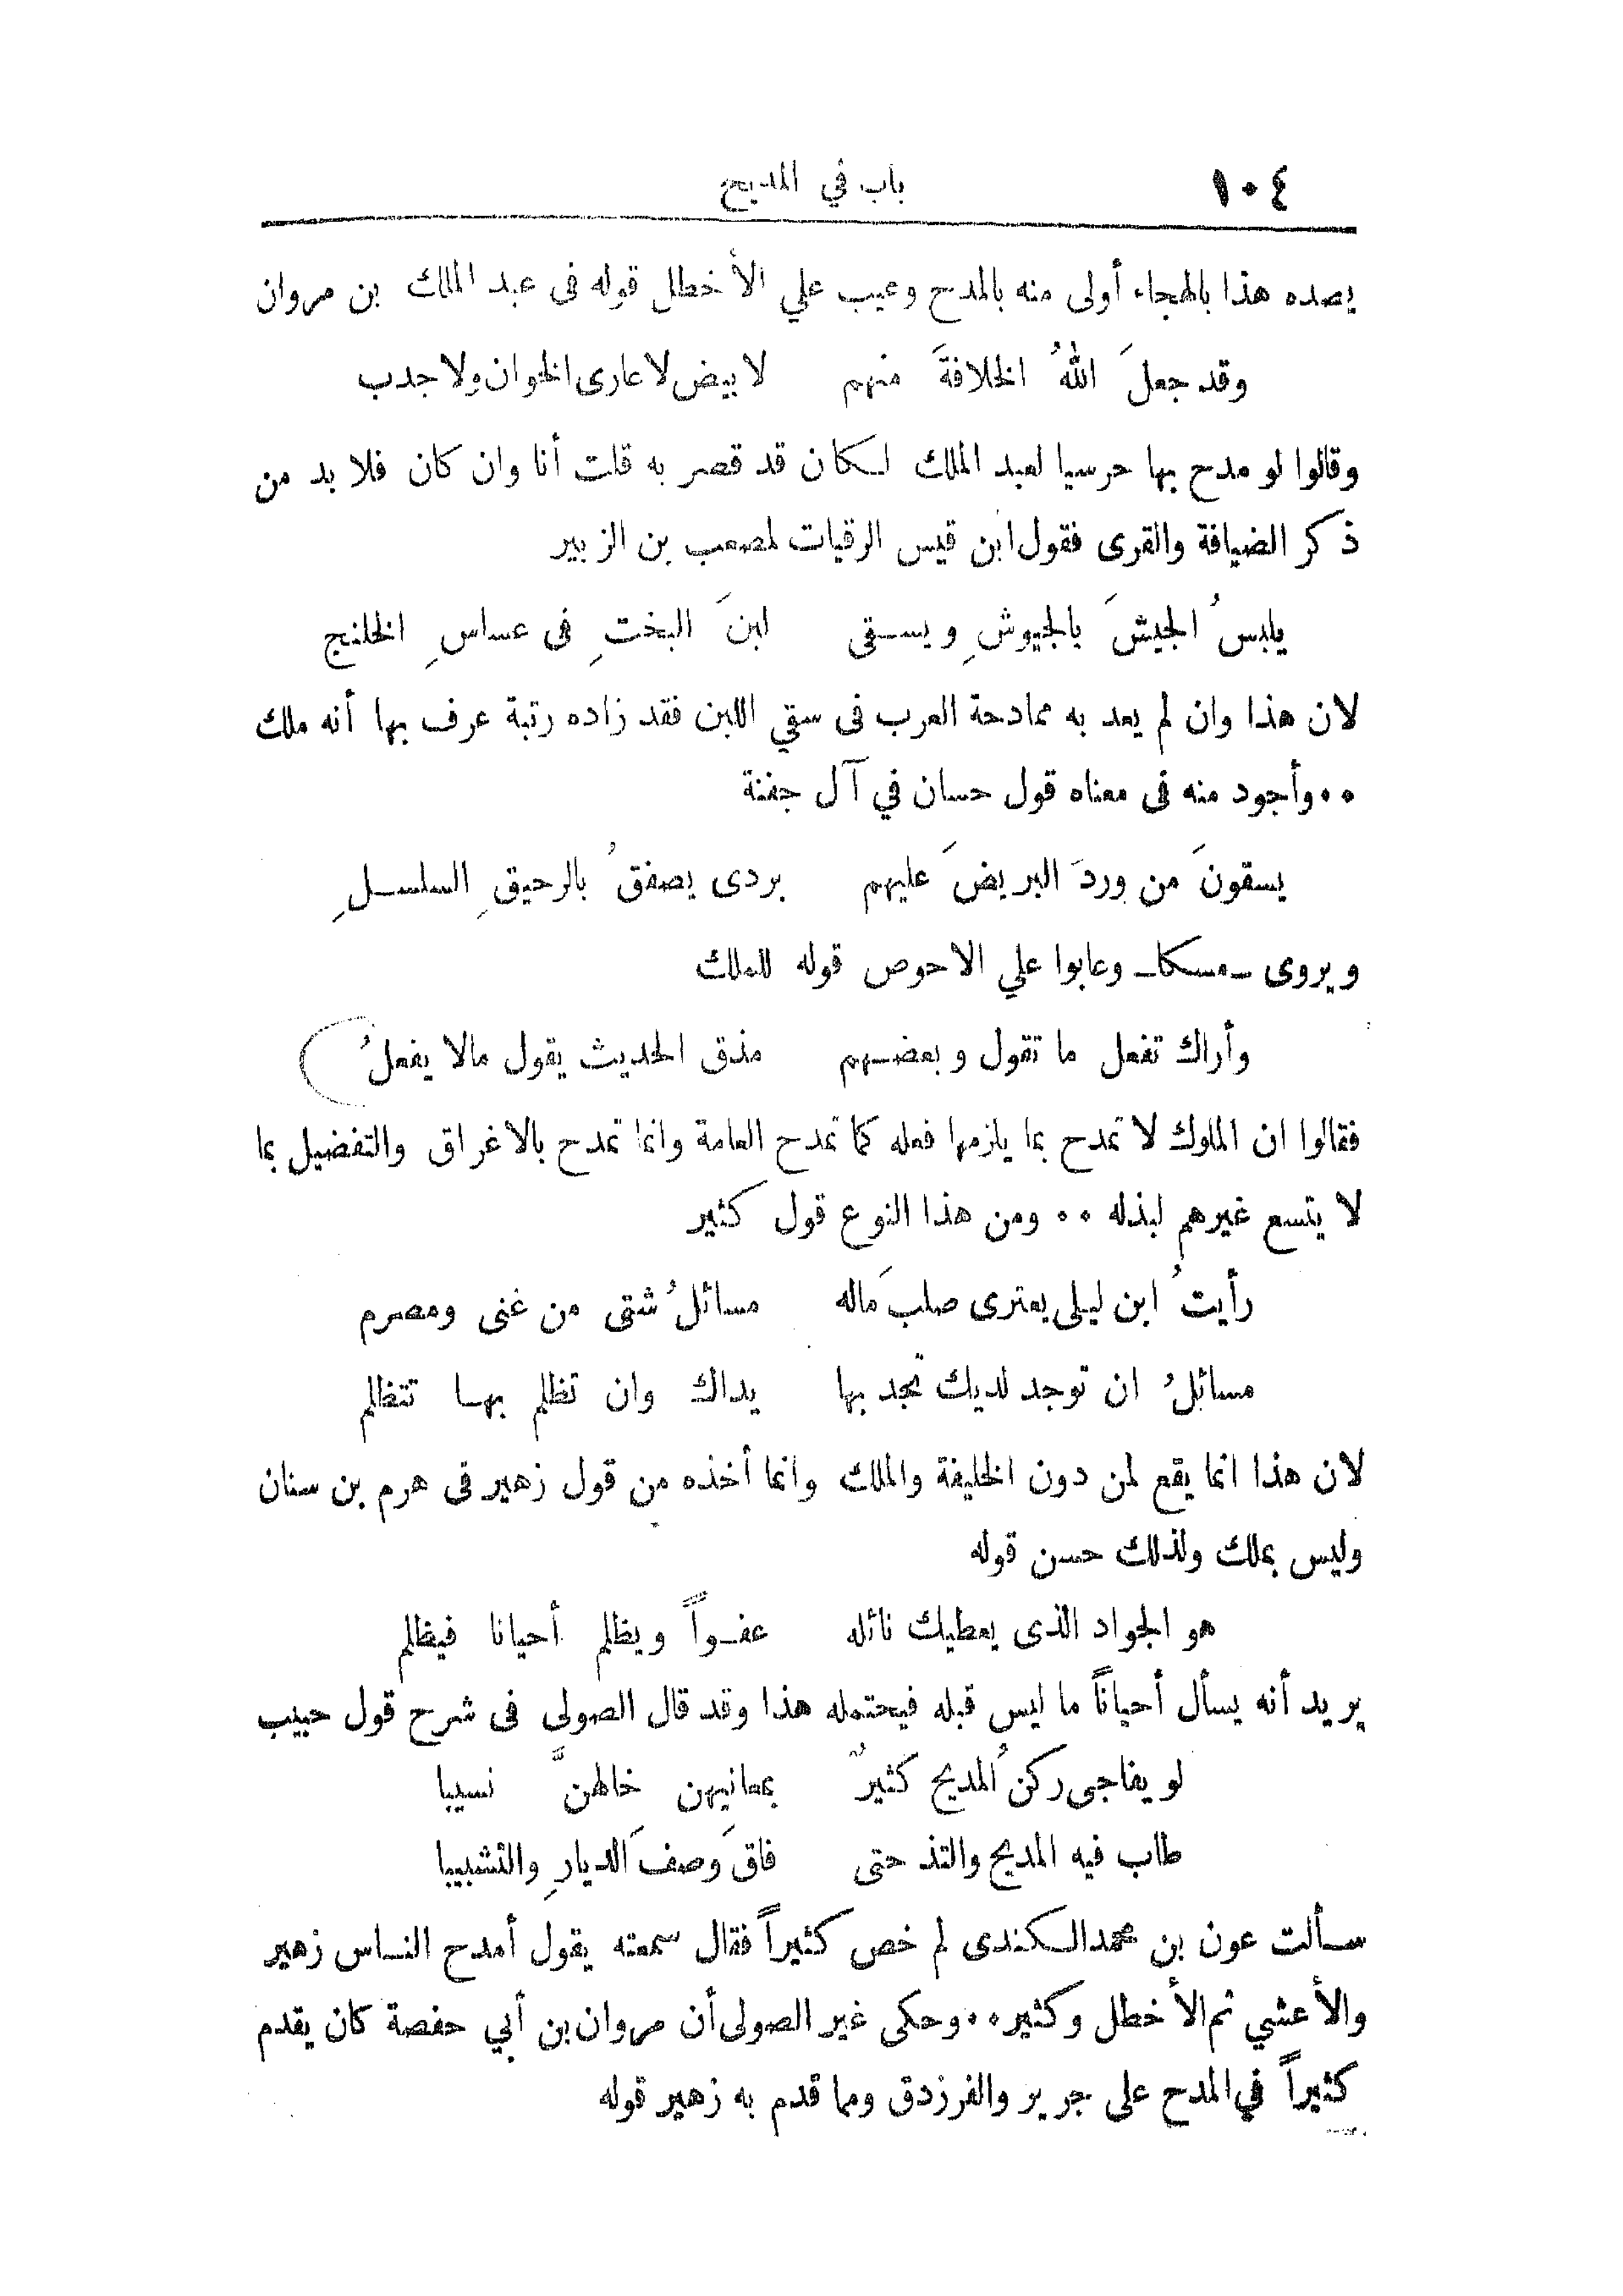 ١٠٤ باب في المديح
يصده هذا بالهجاء أولى منه بالمدح وعيب علي الأخطل قوله فى عبد الملك بن مروان
وقد جعلَ اللهُ الخلافةَ منهم لابيض لا عارى الخوان ولا جدب
وقالوا لو مدح بها حرسيا لعبد الملك لكان قد قصر به قلت أنا وان كان فلا بد من
ذكر الضيافة والقرى فقول ابن قيس الرقيات لمصعب بن الزبير
يلبسُ الجيشَ بالجيوشِ ويسقى لبنَ البختِ فى عساسِ الخلنج
لان هذا وان لم يعد به ممادحة العرب فى سقي اللبن فقد زاده رتبة عرف بها أنه ملك
٠٠ وأجود منه فى معناه قول حسان في آل جفنة
يسقونَ من وردَ البريضَ عليهم بردى يصفقُ بالرحيقِ السلسلِ
ويروى ـ مسكا ـ وعابوا علي الاحوص قوله للملك
وأراك تفعل ما تقول وبعضهم مذق الحديث يقول مالا يفعلُ
فقالوا ان الملوك لا تمدح بما يلزمها فعله كما تمدح العامة وانما تمدح بالاغراق والتفضيل بما
لا يتسع غيرهم لبذله ٠٠ ومن هذا النوع قول كثير
رأيتُ ابن ليلى يعترى صلبَ ماله مسائلُ شتى من غنى ومصرم
مسائلُ ان توجد لديك تجد بها يداك وان تظلم بها تتظلم
لان هذا انما يقع لمن دون الخليفة والملك وانما أخذه من قول زهير فى هرم بن سنان
وليس بملك ولذلك حسن قوله
هو الجواد الذى يعطيك نائله عفواً ويظلم أحيانا فيظلم
يريد أنه يسأل أحياناً ما ليس قبله فيحتمله هذا وقد قال الصولى فى شرح قول حبيب
لو يفاجى ركنُ المديح كثيرٌ بمعانيهن خالهنَّ نسيبا
طاب فيه المديح والتذ حتى فاقَ وصفَ الديارِ والتشبيبا
سألت عون بن محمد الكندى لم خص كثيراً فقال سمعته يقول أمدح الناس زهير
والأعشي ثم الأخطل وكثير ٠٠ وحكى غير الصولى أن مروان بن أبي حفصة كان يقدم
كثيراً في المدح على جرير والفرزدق ومما قدم به زهير قوله